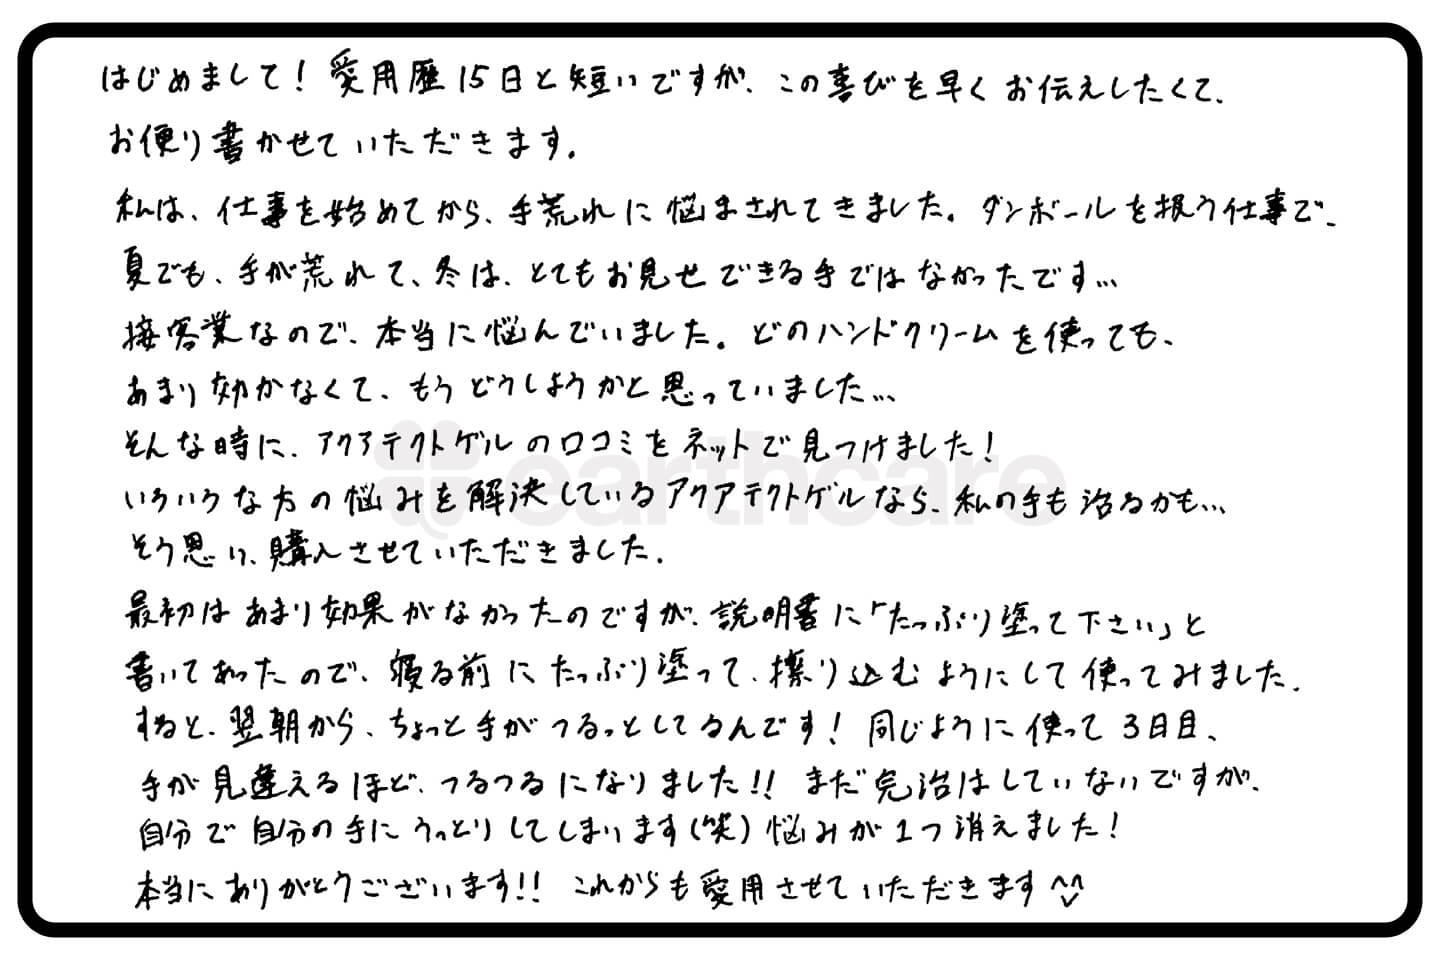 はじめまして!愛用歴15日と短いですが、この喜びを早くお伝えしたくて、
お便り書かせていただきます。
私は、仕事を始めてから、手荒れに悩まされてきました。ダンボールを扱う仕事で、
夏でも、手が荒れて、冬は、とてもお見せできる手ではなかったです…
接客業なので、本当に悩んでいました。どのハンドクリームを使っても、
あまり効かなくて、もうどうしようかと思っていました…
そんな時に、アクアテクトゲルの口コミをネットで見つけました!
いろいろな方の悩みを解決しているアクアテクトゲルなら、私の手も治るかも…
そう思い、購入させていただきました。
最初はあまり効果がなかったのですが、説明書に「たっぷり塗って下さい」と
書いてあったので、寝る前にたっぷり塗って、擦り込むようにして使ってみました。
すると、翌朝から、ちょっと手がつるっとしてるんです!同じように使って3日目、
手が見違えるほど、つるつるになりました!!まだ完治はしていないですが、
自分で自分の手にうっとりしてしまいます(笑)悩みが1つ消えました!
本当にありがとうございます!!これからも愛用させていただきます^^
earthcare